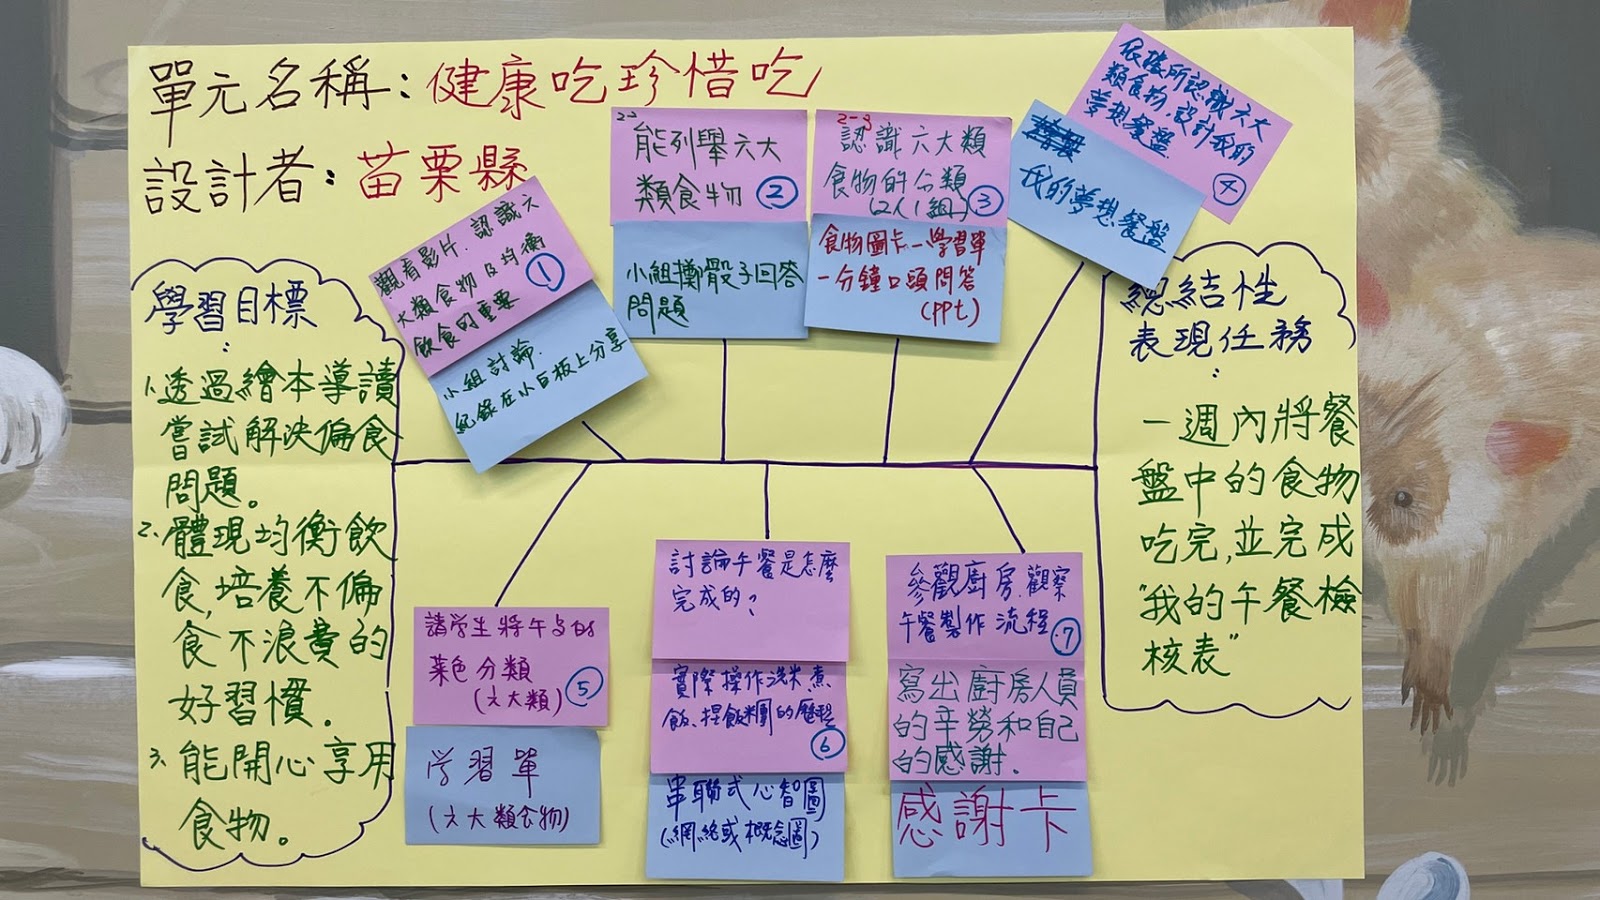 單元名稱：健康吃珍惜吃
設計者：苗栗縣
學習目標
：
1.透過繪本導讀
嘗試解決偏食
問題。
2.體現均衡飲
食,培養不偏
食不浪費的
好習慣.
3.能開心享用
食物。
觀看影片.認識六
大類食物及均衡
飲食的重要
①
小組討論.
紀錄在小白板上分享
能列舉六大
類食物 ②
小組擲骰子回答
問題
2-3
認識六大類
食物的分類
(2人1組) ③
食物圖卡、學習單
一分鐘口頭問答
(ppt)
依據所認識六大
類食物,設計我的
夢想餐盤
④
我的夢想餐盤
請學生將午餐的
菜色分類
(六大類) ⑤
学習單
(六大類食物)
討論午餐是怎麼
完成的?
實際操作洗米.煮
飯、捏飯糰的歷程
⑥
串聯式心智圖
(網絡或概念圖)
參觀廚房.觀察
午餐製作流程 ⑦
寫出廚房人員
的辛勞和自己
的感謝.
感謝卡
總結性
表現任務
：
一週內將餐
盤中的食物
吃完,並完成
"我的午餐檢
核表"